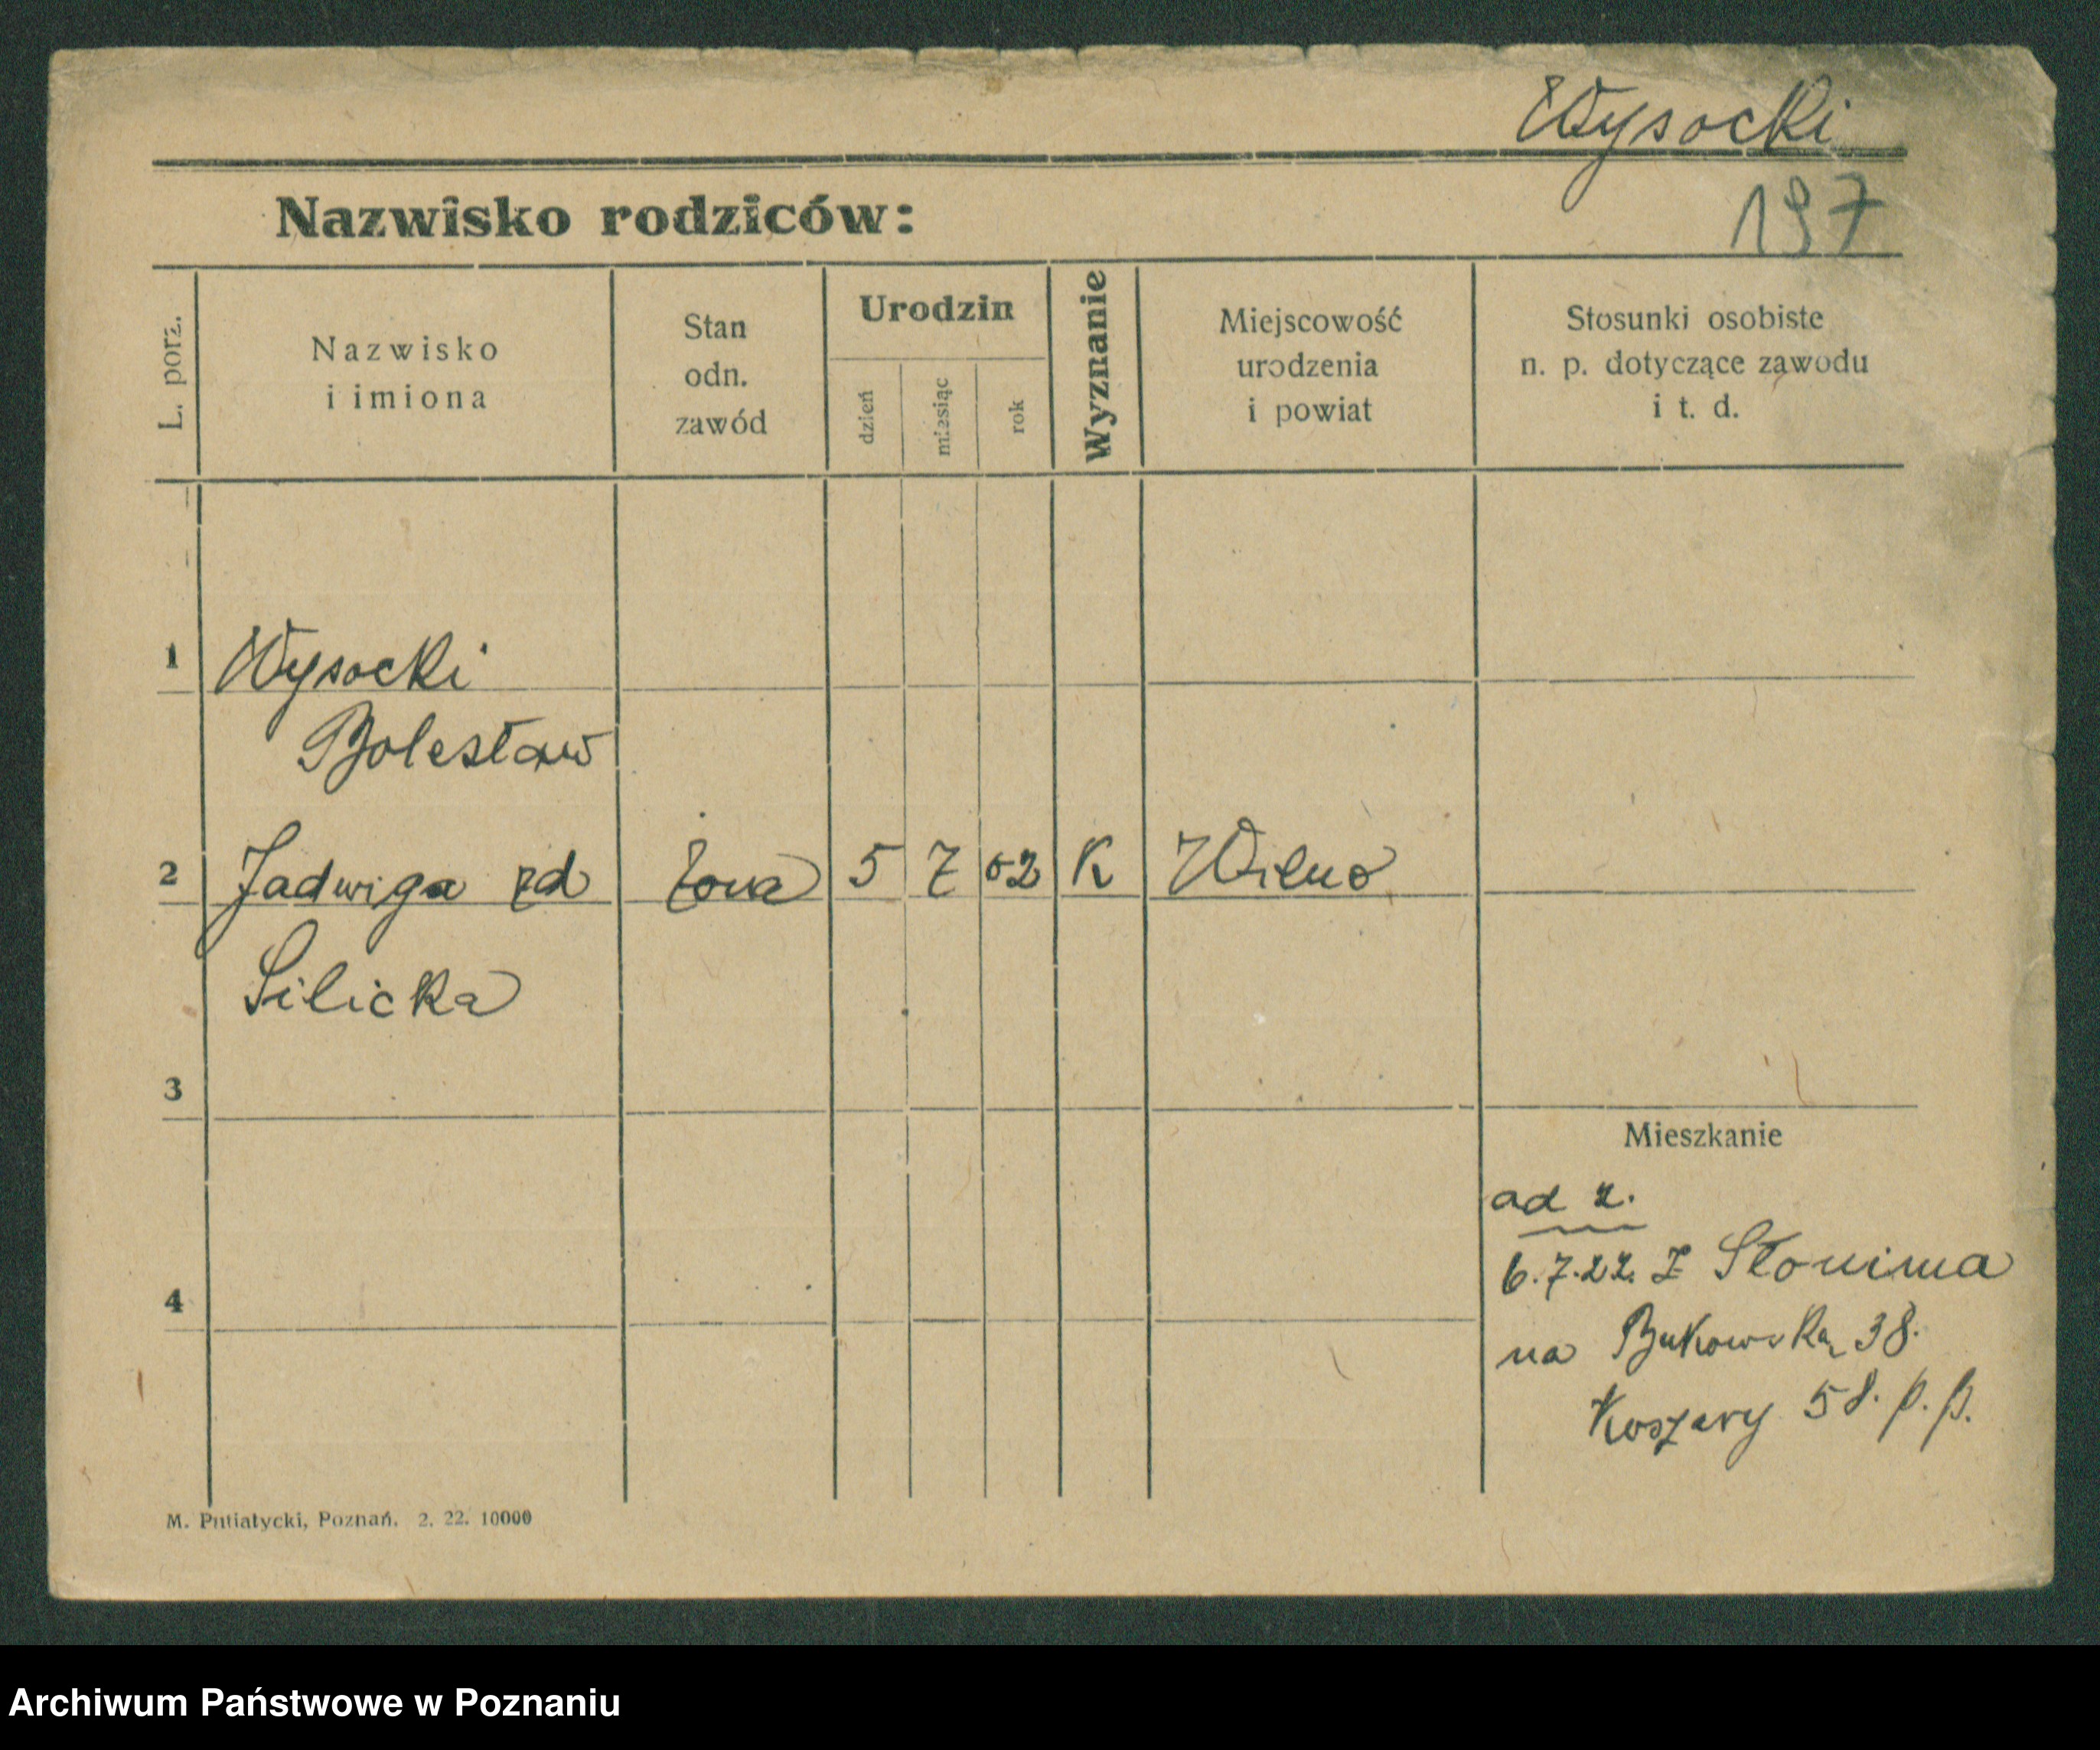 Wysocki
197
Nazwisko rodziców:
L. porz.
Nazwisko
i imiona
Stan
odn.
zawód
Urodzin
dzień
miesiąc
rok
Wyznanie
Miejscowość
urodzenia
i powiat
Stosunki osobiste
n. p. dotyczące zawodu
i t. d.
1 Wysocki
Bolesław
2 Jadwiga zd żona 5 7 02 K Wilno
Silicka
3
Mieszkanie
ad 2.
6.7.22. z Słonima
4
na Bukowską 38.
Koszary 58. p. p.
M. Putiatycki, Poznań. 2. 22. 10000
Archiwum Państwowe w Poznaniu